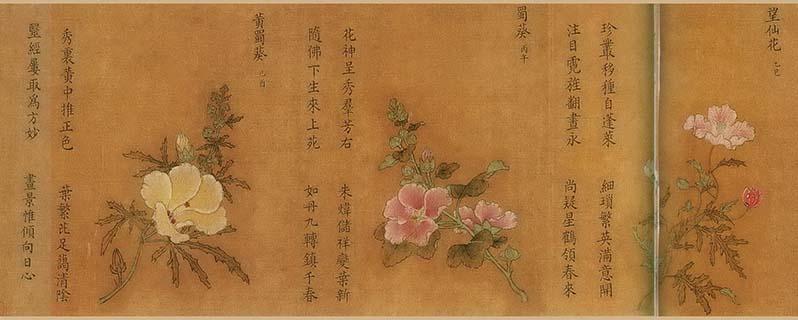 望仙花 乙巳
珍叢移種自蓬萊 細瑣繁英滿意開
注目霓旌翻晝永 尚疑星鶴領春來
蜀葵 丙午
花神呈秀羣芳右 朱煒儲祥變葉新
隨佛下生來上苑 如丹九轉鎮千春
黃蜀葵 己酉
秀裏黃中推正色 葉繁比足清陰
毉經屢取為方妙 晝景惟傾向日心